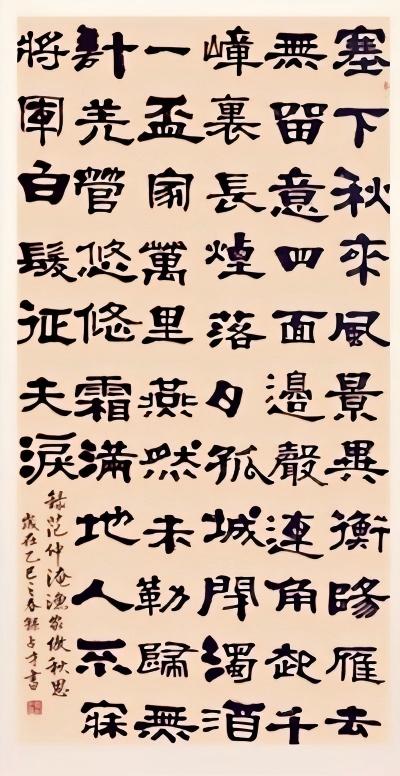 塞下秋來風景異衡陽雁去
無留意四面邊聲連角起千
嶂裏長煙落日孤城閉濁酒
一盃家萬里燕然未勒歸無
計羌管悠悠霜滿地人不寐
將軍白髮征夫淚
錄范仲淹漁家傲秋思
歲在乙巳之春占才書